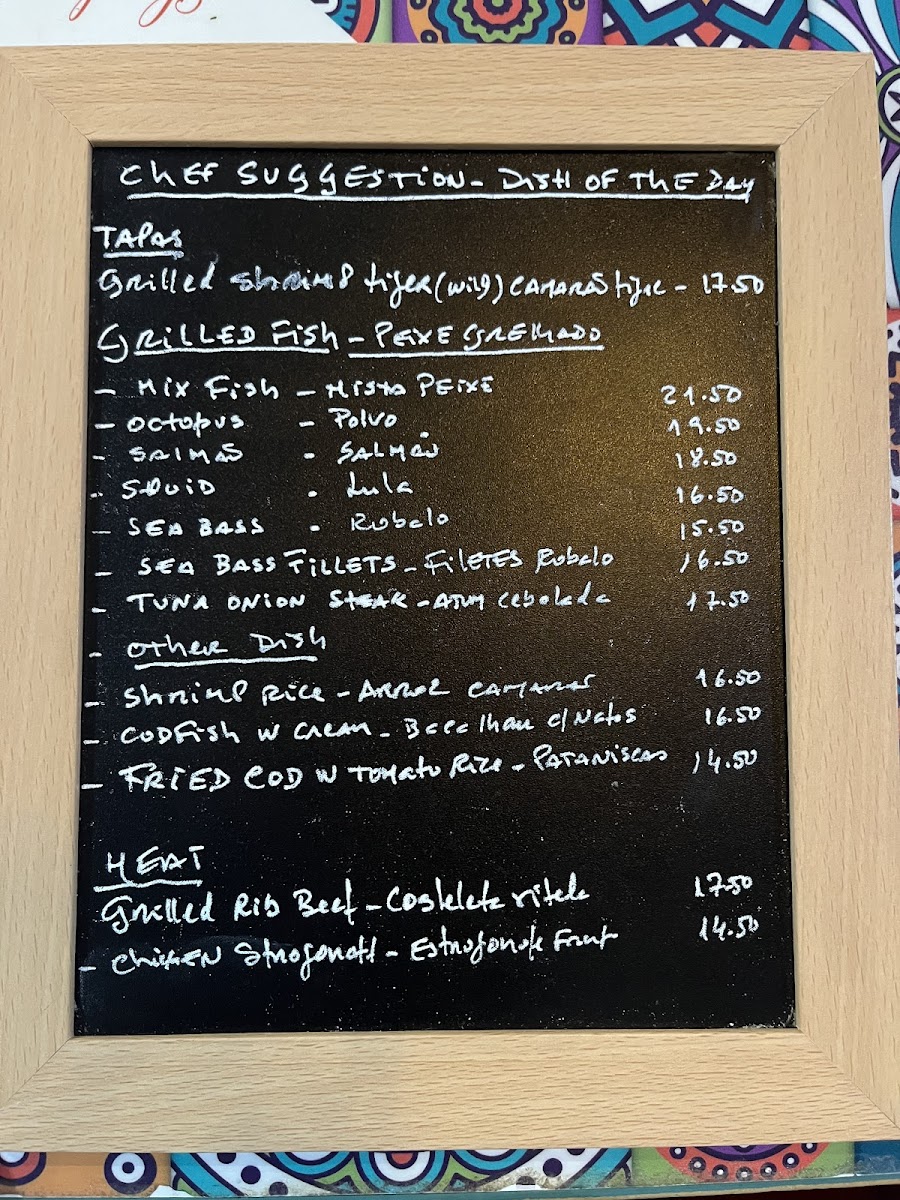 CHEF SUGGESTION - DISH OF THE DAY
TAPAS
Grilled shrimp tiger (wild) CAMARÃO tigre - 17.50
GRILLED Fish - PEIXE GRELHADO
- MIX Fish - MISTO PEIXE 21.50
- OCTOPUS - Polvo 19.50
- SALMÃO - SALMÃO 18.50
- SQUID - Lula 16.50
- SEA BASS - Robalo 15.50
- SEA BASS FILLETS - FILETES Robalo 16.50
- TUNA ONION STEAK - ATUM Cebolada 17.50
- OTHER DISH
- Shrimp RICE - ARROZ CAMARAO 16.50
- CODFish W CREAM - Bacalhau c/ Natas 16.50
- FRIED COD W TOMATO RICE - PATANISCAS 14.50
MEAT
Grilled RIB BEEF - Costeleta vitela 17.50
- CHICKEN Strogonoff - Estrogonofe 14.50